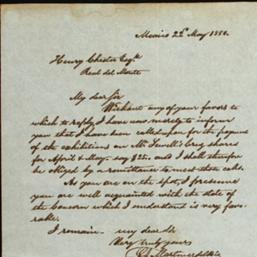 Mexico 22d May 1850.
Henry Chester Esqre
Real del Monte
My dear Sir
Without any of your favors to
which to reply I have now merely to inform
you that I have been called upon for the payment
of the exhibitions on Mr. Jewell's Corg shares
for April & May. say $25. and I shall therefore
be obliged by a remittance to meet these calls.
As you are on the spot, I presume
you are well acquainted with the state of
the Concern which I understand is very favo-
rable.
I remain my dear Sir
Very truly yours